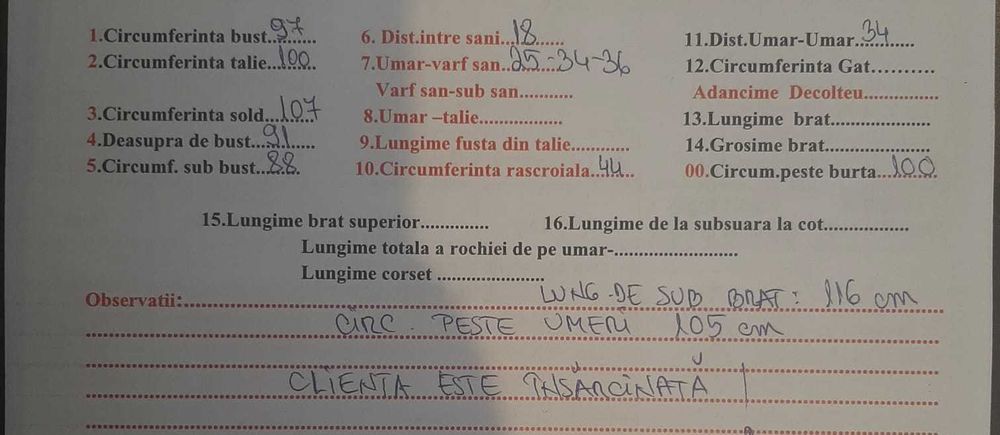 1.Circumferinta bust..97....... 6. Dist.intre sani..18....... 11.Dist.Umar-Umar..34......
2.Circumferinta talie..100.. 7.Umar-varf san..25-34-36 12.Circumferinta Gat..........
Varf san-sub san........... Adancime Decolteu...............
3.Circumferinta sold...107 8.Umar –talie.................. 13.Lungime brat....................
4.Deasupra de bust...91...... 9.Lungime fusta din talie............ 14.Grosime brat.....................
5.Circumf. sub bust...88. 10.Circumferinta rascroiala..44.. 00.Circum.peste burta...100.
15.Lungime brat superior.............. 16.Lungime de la subsuara la cot.................
Lungime totala a rochiei de pe umar-..........................
Lungime corset ......................
Observatii: LUNG. DE SUB BRAT: 116 cm
CIRC. PESTE UMERI 105 cm
CLIENTA ESTE ÎNSĂRCINATĂ !